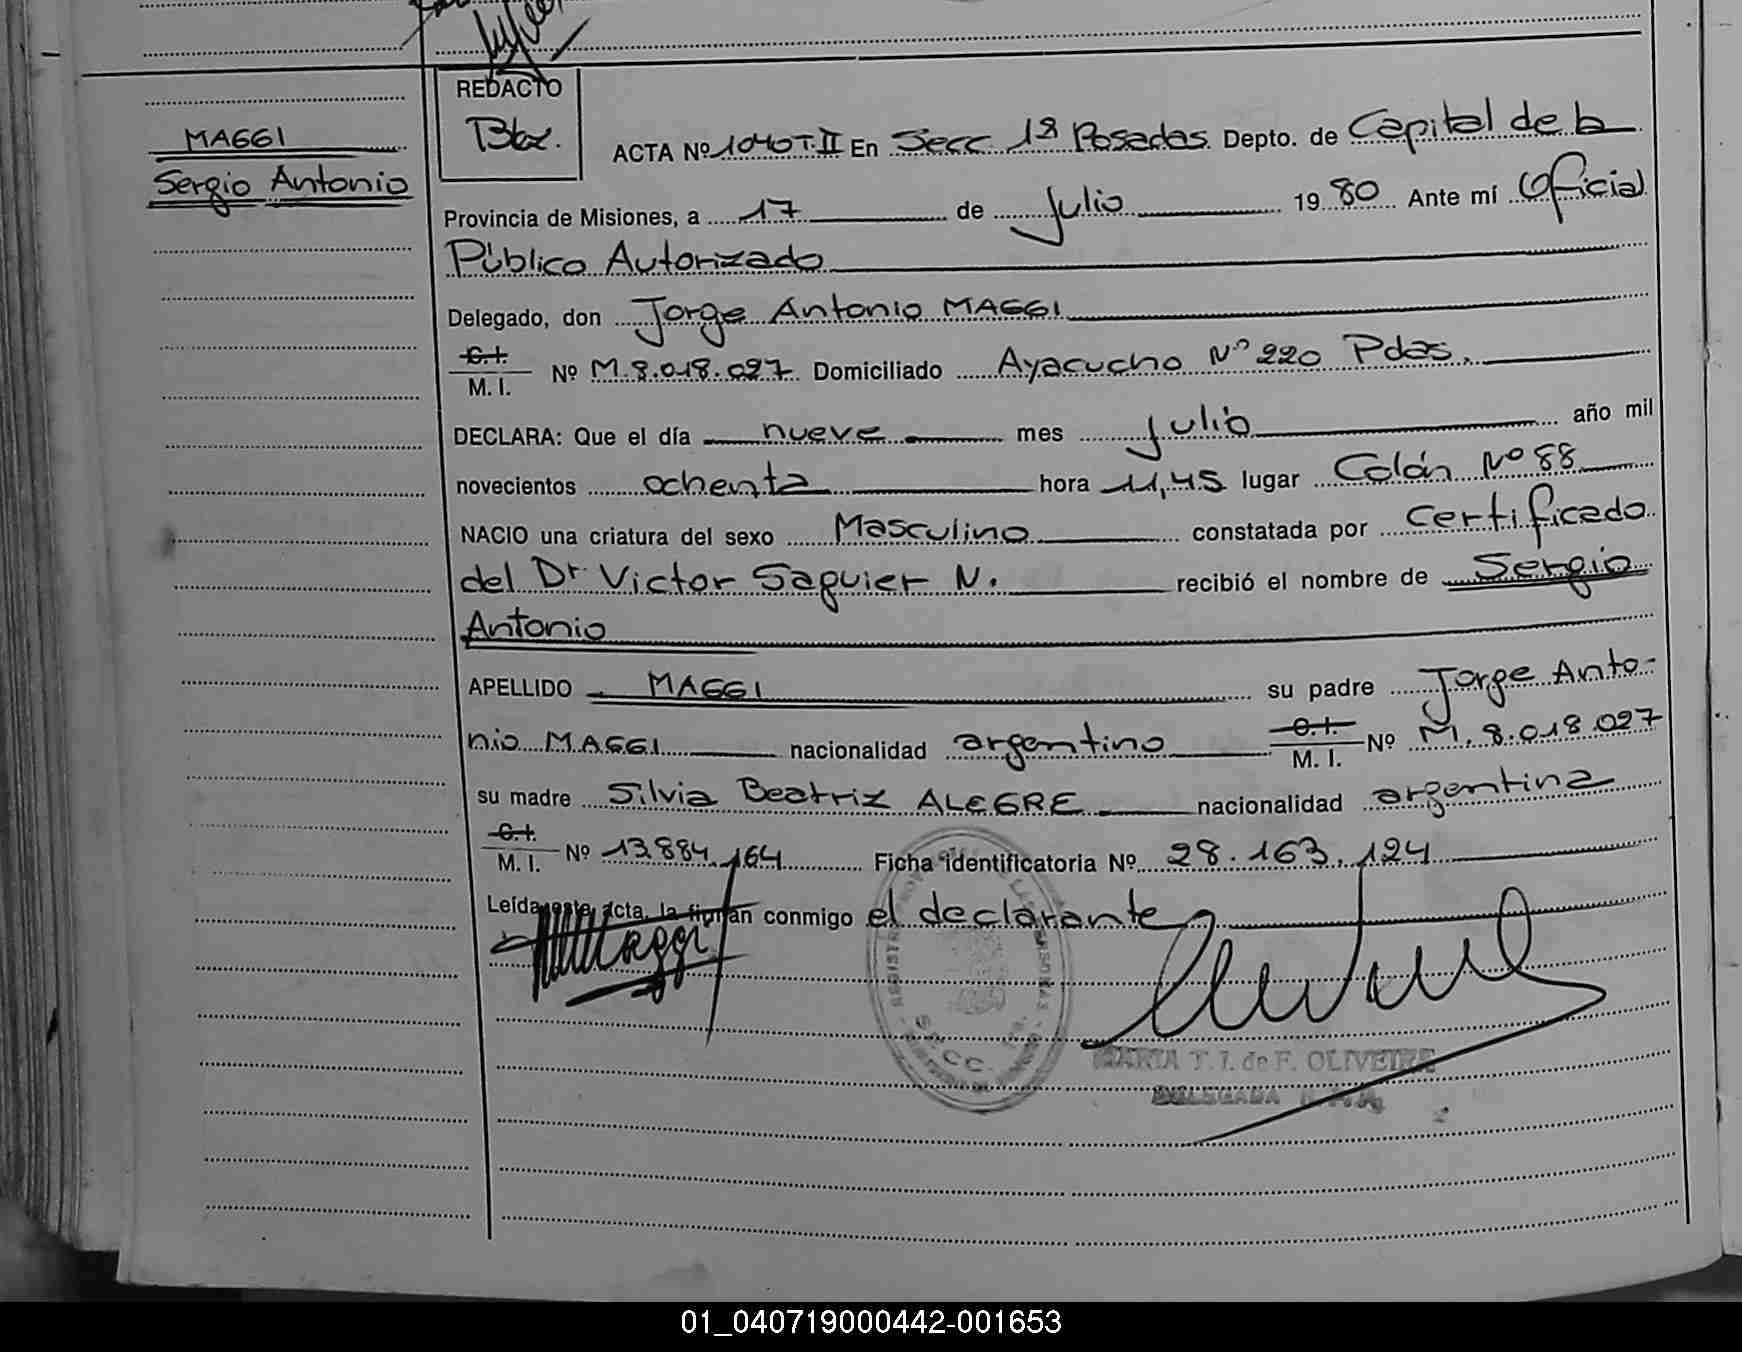 REDACTO
MAGGI
Sergio Antonio
ACTA Nº 1040 T.II En Secc 1ª Posadas Depto. de Capital de la
Provincia de Misiones, a 17 de Julio 1980 Ante mí Oficial
Público Autorizado
Delegado, don Jorge Antonio MAGGI
C.I.
M. I. Nº M.8.018.027 Domiciliado Ayacucho Nº 220 Pdas.
DECLARA: Que el día nueve mes Julio año mil
novecientos ochenta hora 11,45 lugar Colón Nº 88
NACIO una criatura del sexo Masculino constatada por Certificado
del Dr. Victor Saguier N. recibió el nombre de Sergio
Antonio
APELLIDO MAGGI su padre Jorge Anto-
nio MAGGI nacionalidad argentino C.I. M. I. Nº M.8.018.027
su madre Silvia Beatriz ALEGRE nacionalidad argentina
C.I.
M. I. Nº 13.884.164 Ficha identificatoria Nº 28.163.124
Leída este acta, la firman conmigo el declarante
MARIA T. I. de F. OLIVEIRA
DELEGADA
SECC.
01_040719000442-001653